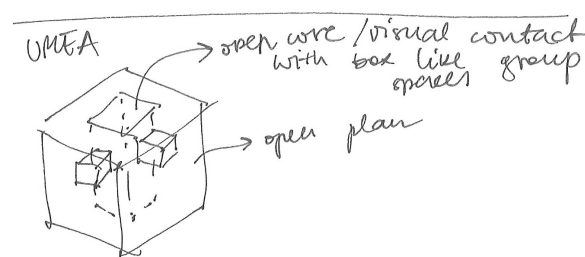 UMEA
open core / visual contact
with box like group
spaces
open plan